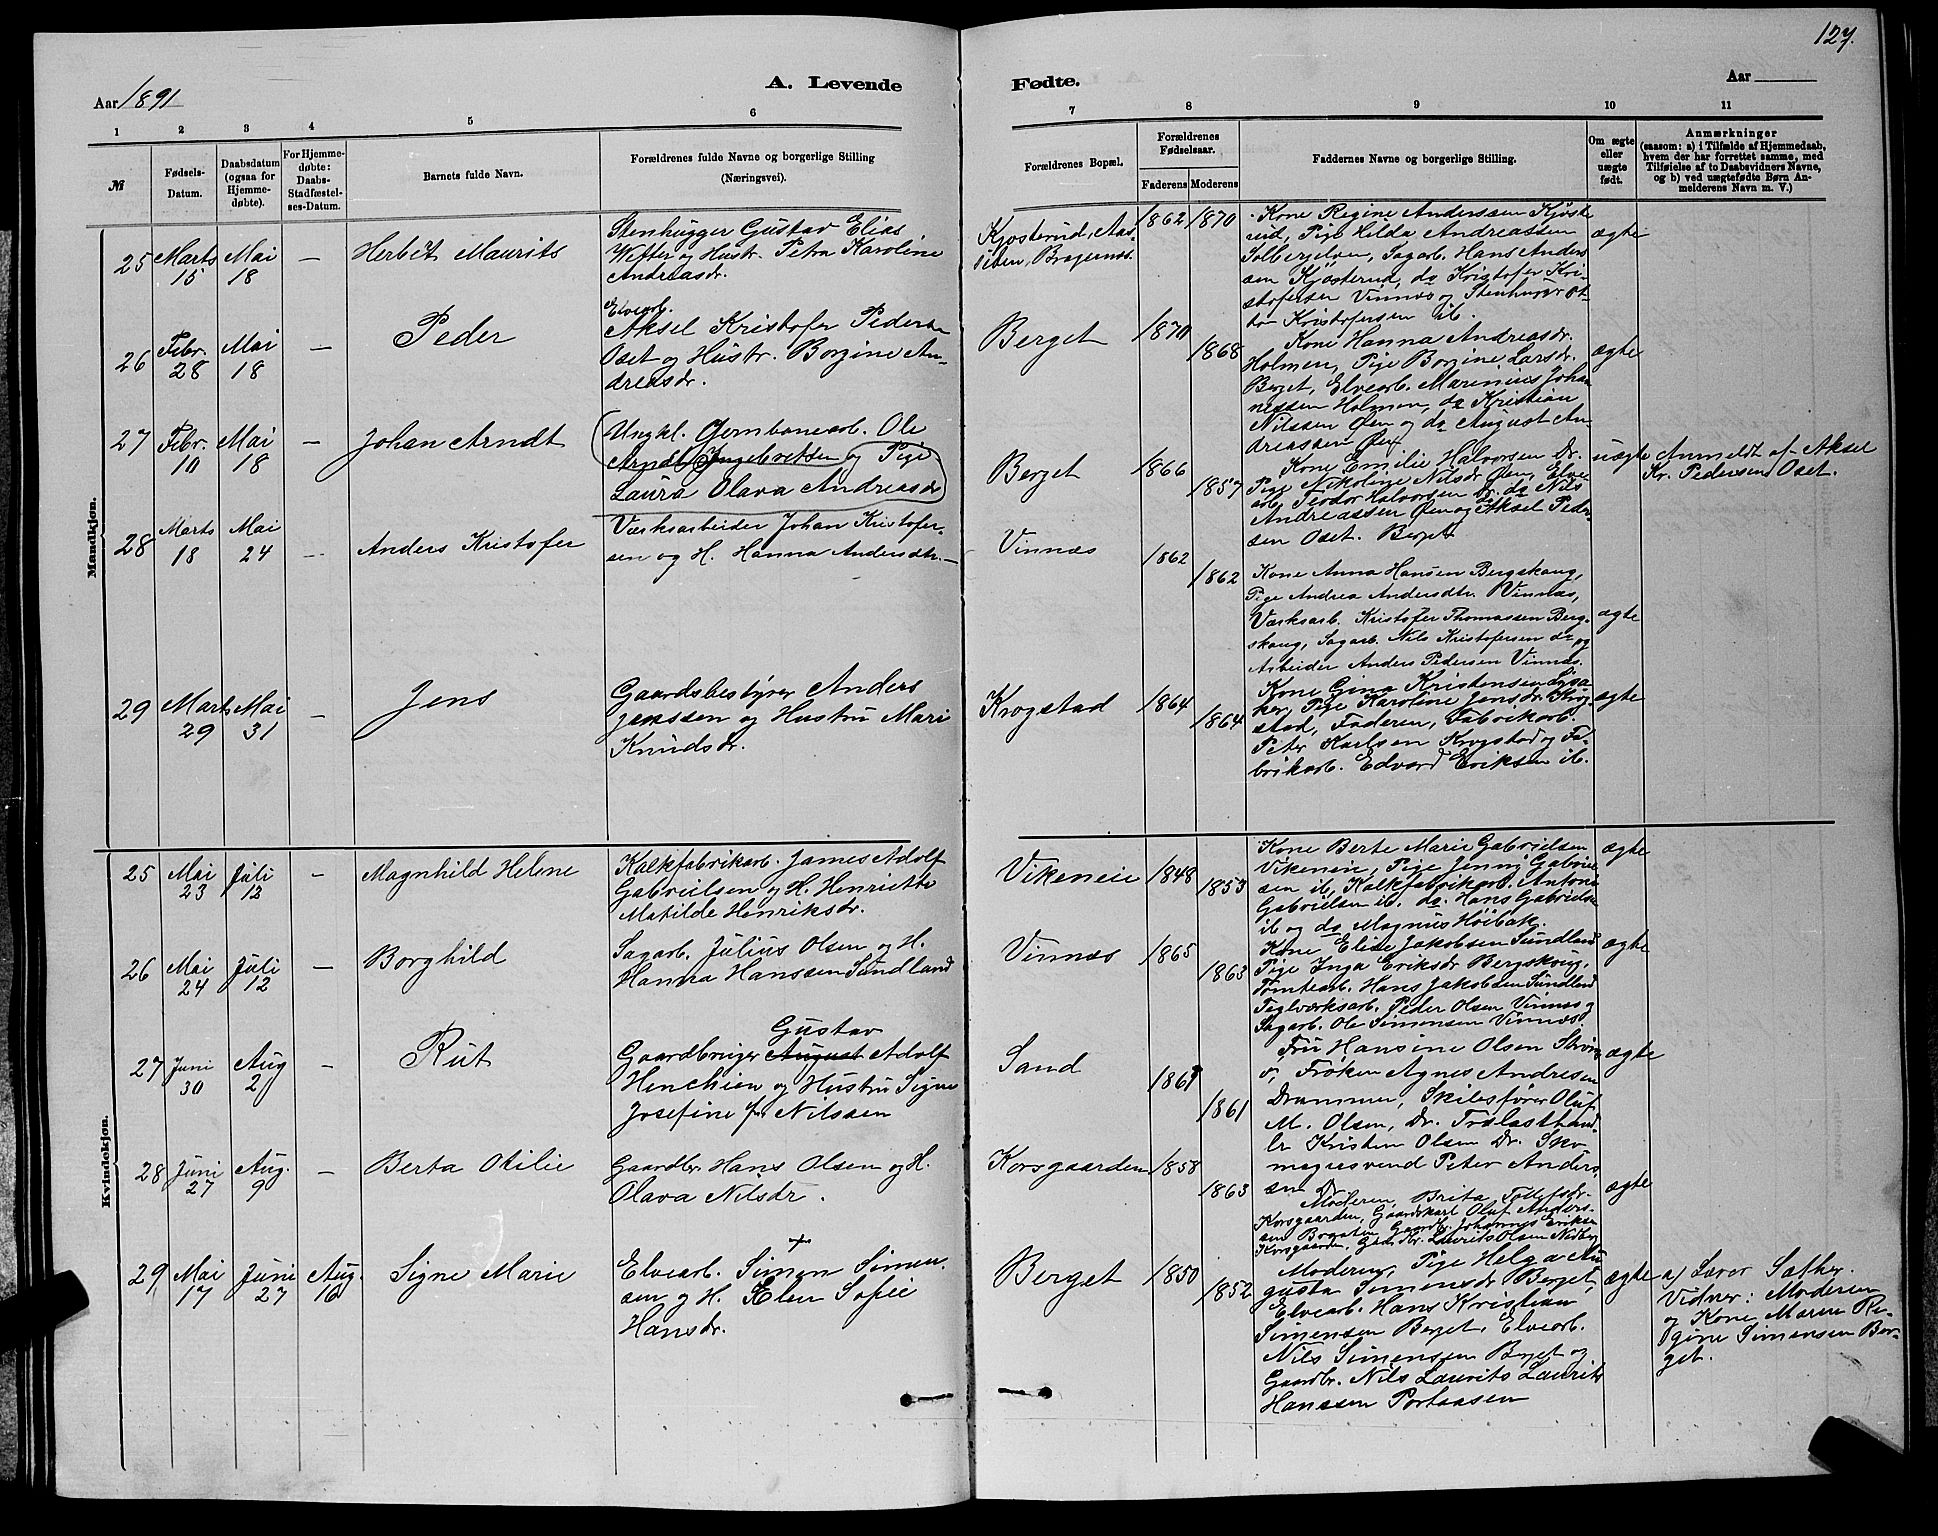 127.
Aar 1891
A. Levende
Fødte.
Aar
1 2 3 4 5 6 7 8 9 10 11
№
Fødsels-
Datum.
Daabsdatum
(ogsaa for
Hjemme-
døbte).
For Hjemme-
døbte:
Daabs-
Stadfæstel-
ses-Datum.
Barnets fulde Navn.
Forældrenes fulde Navne og borgerlige Stilling
(Næringsvei).
Forældrenes Bopæl.
Forældrenes
Fødselsaar.
Faderens Moderens
Faddernes Navne og Stilling.
Om ægte
eller
uægte
født.
Anmærkninger
(saasom: a) i Tilfælde af Hjemmedaab,
hvem der har forrettet samme, med
Tilføielse af to Daabsvidners Navne,
og b) ved uægtefødte Børn An-
melderens Navn m. V.)
Mandkjøn.
25 Marts 15 Mai 18 — Herbet Maurits
Stenhugger Gustav Elias
Wefter og Hustr. Petra Karoline
Andreasdr.
Kjøsterud, Aas-
siden, Bragernes.
1862 1870
Kone Regine Andersen Kjøste
rud, Pige Hilda Andreassen
Solbergelven, Sagarb. Hans Anders
sen Kjøsterud, do Kristofer Kri-
stofersen Vinnæs og Stenhugger Ot-
to Kristofersen ib.
ægte
26 Febr. 28 Mai 18 — Peder
Elvearb.
Aksel Kristofer Peders
Oset og Hustr. Borgine An-
dreasdr.
Berget
1870 1868
Kone Hanna Andreasdr.
Holmen, Pige Borgine Larsdr.
Berget, Elvearb. Marinius Johan
nessen Holmen, do Kristian
Nilsen Øen og do August An
dreassen Øen
ægte
27 Febr. 10 Mai 18 — Johan Arndt
Ungkl. Jernbanearb. Ole
Arndt Ingebretsen og Pige
Laura Olava Andreasdr
Berget
1866 1857
Kone Emilie Halvorsen Dr.
Pige Nikoline Nilsdr Øen, Elve
arb. Teodor Halvorsen Dr. do Nils
Andreassen Øen og do Aksel Peder
sen Oset. Berget
uægte
Anmeldt af Aksel
Kr. Pedersen Oset.
28 Marts 18 Mai 24 — Anders Kristofer
Værksarbeider Johan Kristofer-
sen og H. Hanna Andersdtr.
Vinnæs
1862 1862
Kone Anna Hansen Bergskaug,
Pige Andrea Andersdtr. Vinnæs,
Værksarb. Kristofer Thomassen Berg-
skaug, Sagarb. Nils Kristofersen do og
Arbeider Anders Pedersen Vinnæs.
ægte
29 Marts 29 Mai 31 — Jens
Gaardsbestyrer Anders
Jenssen og Hustru Mari
Knudsdr.
Krogstad
1864 1864
Kone Gina Kristensen
Pige Karoline Jensdr. Krog
stad, Faderen, Fabrikarb.
Peter Karlsen Krogstad og Fa-
brikarb. Edvard Eriksen ib.
ægte
Kvindekjøn.
25 Mai 23 Juli 12 — Magnhild Helene
Kalkfabrikarb. James Adolf
Gabrielsen og H. Henriette
Matilde Henriksdr.
Vikeneie
1848 1853
Kone Berte Marie Gabrielsen
Vikeneie, Pige Jenny Gabriel
sen ib, Kalkfabrikarb. Anton
Gabrielsen ib. do. Hans Gabriels
ib og do Magnus Høibak.
ægte
26 Mai 24 Juli 12 — Borghild
Sagarb. Julius Olsen og H.
Hanna Hanssen Sundland
Vinnæs
1865 1863
Kone Elise Jakobsen Sundland
Pige Inga Eriksdr Bergskoug,
Tomtearb. Hans Jakobsen Sundland
Teglværksarb. Peder Olsen Vinnæs og
Sagarb. Ole Simensen Vinnæs.
ægte
27 Juni 30 Aug 2 — Rut
Gustav
Gaardbruger August Adolf
Henchien og Hustru Signe
Josefine f. Nilssen
Sand
1861 1861
Fru Hansine Olsen Strøms
ø, Frøken Agnes Andresen
Drammen, Skibsfører Oluf
M. Olsen, Dr. Trælasthand
ler Kristen Olsen Dr. Sko
magersvend Peter Anders
sen Dr
ægte
28 Juni 27 Aug. 9 — Berta Otilie
Gaardbr. Hans Olsen og H.
Olava Nilsdr.
Korsgaarden
1858 1863
Moderen, Brita Tollefsdr.
Korsgaarden, Gaardskarl Oluf Anders-
sen Gaardbr. Johannes Eriksen
Korsgaarden, Laurits Olsen Nedby
ægte
29 Mai 17 Juni 27 Aug. 16 Signe Marie
Elvearb. Simen Simen-
sen og H. Elen Sofie
Hansdr.
Berget
1850 1852
Moderen, Pige Helga Au
gusta Simensdr Berget,
Elvearb. Hans Kristian
Simensen Berget, Elvearb.
Nils Simensen Berget og
Gaardbr. Nils Laurits Laurits
Hanssen Portaasen
ægte
a) Lærer Sæther.
Vidner: Moderen
og Kone Maren Re-
gine Simensen Ber-
get.